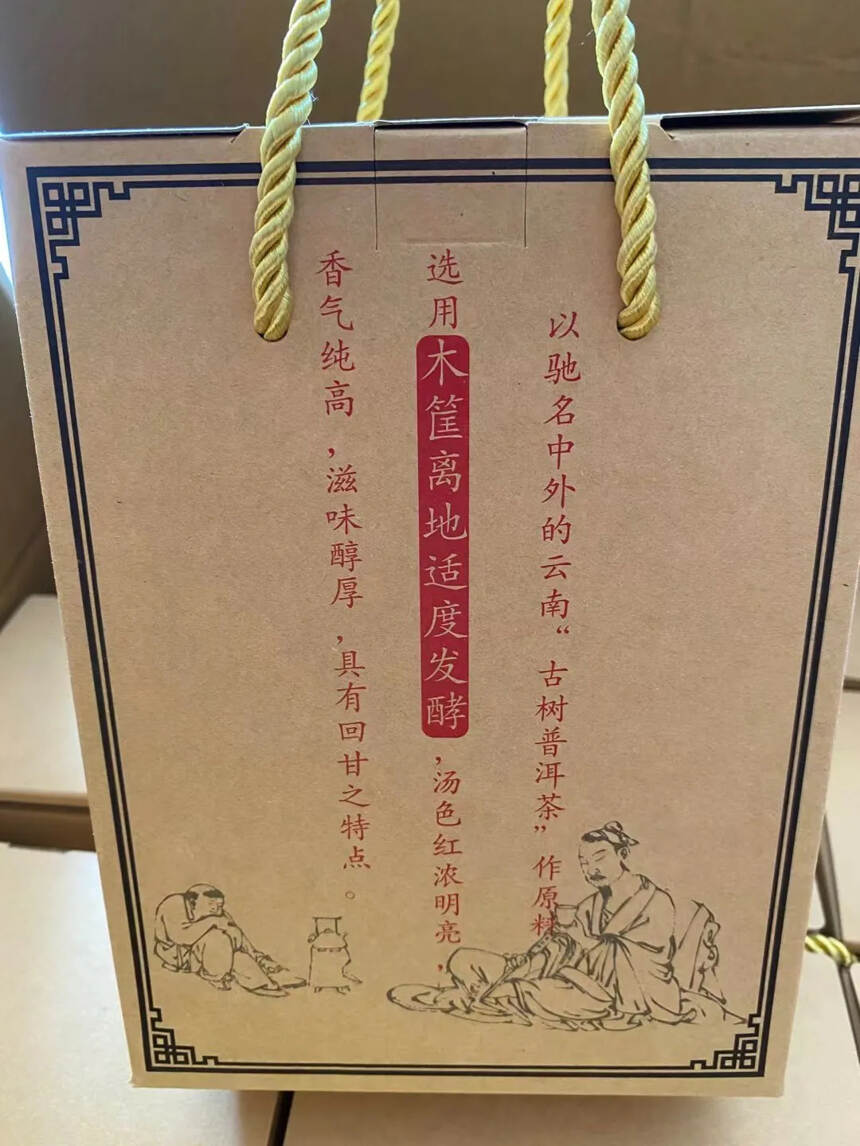 以驰名中外的云南“古树普洱茶”作原料
选用木筐离地适度发酵，汤色红浓明亮，
香气纯高，滋味醇厚，具有回甘之特点。